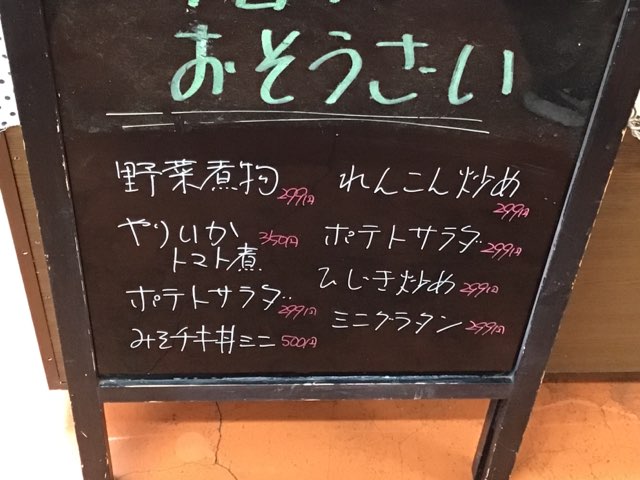 おそうざい
野菜煮物 299円
やりいか 350円
トマト煮
ポテトサラダ 299円
みそチキ丼ミニ 500円
れんこん炒め
299円
ポテトサラダ 299円
ひじき炒め 299円
ミニグラタン 299円